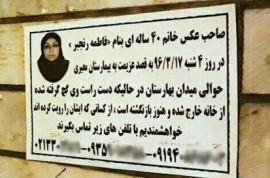 صاحب عکس خانم ۴۰ ساله ای بنام «فاطمه رنجبر»
در روز ۴ شنبه ۹۶/۳/۱۷ به قصد عزیمت به بیمارستان معیری
حوالی میدان بهارستان در حالیکه دست راست وی گچ گرفته شده
از خانه خارج شده و هنوز بازنگشته است ، از کسانی که ایشان را رویت کرده اند
خواهشمندیم با تلفن های زیر تماس بگیرند
۰۲۱۳۳ ۰۹۳۵ ۰۹۱۹۴